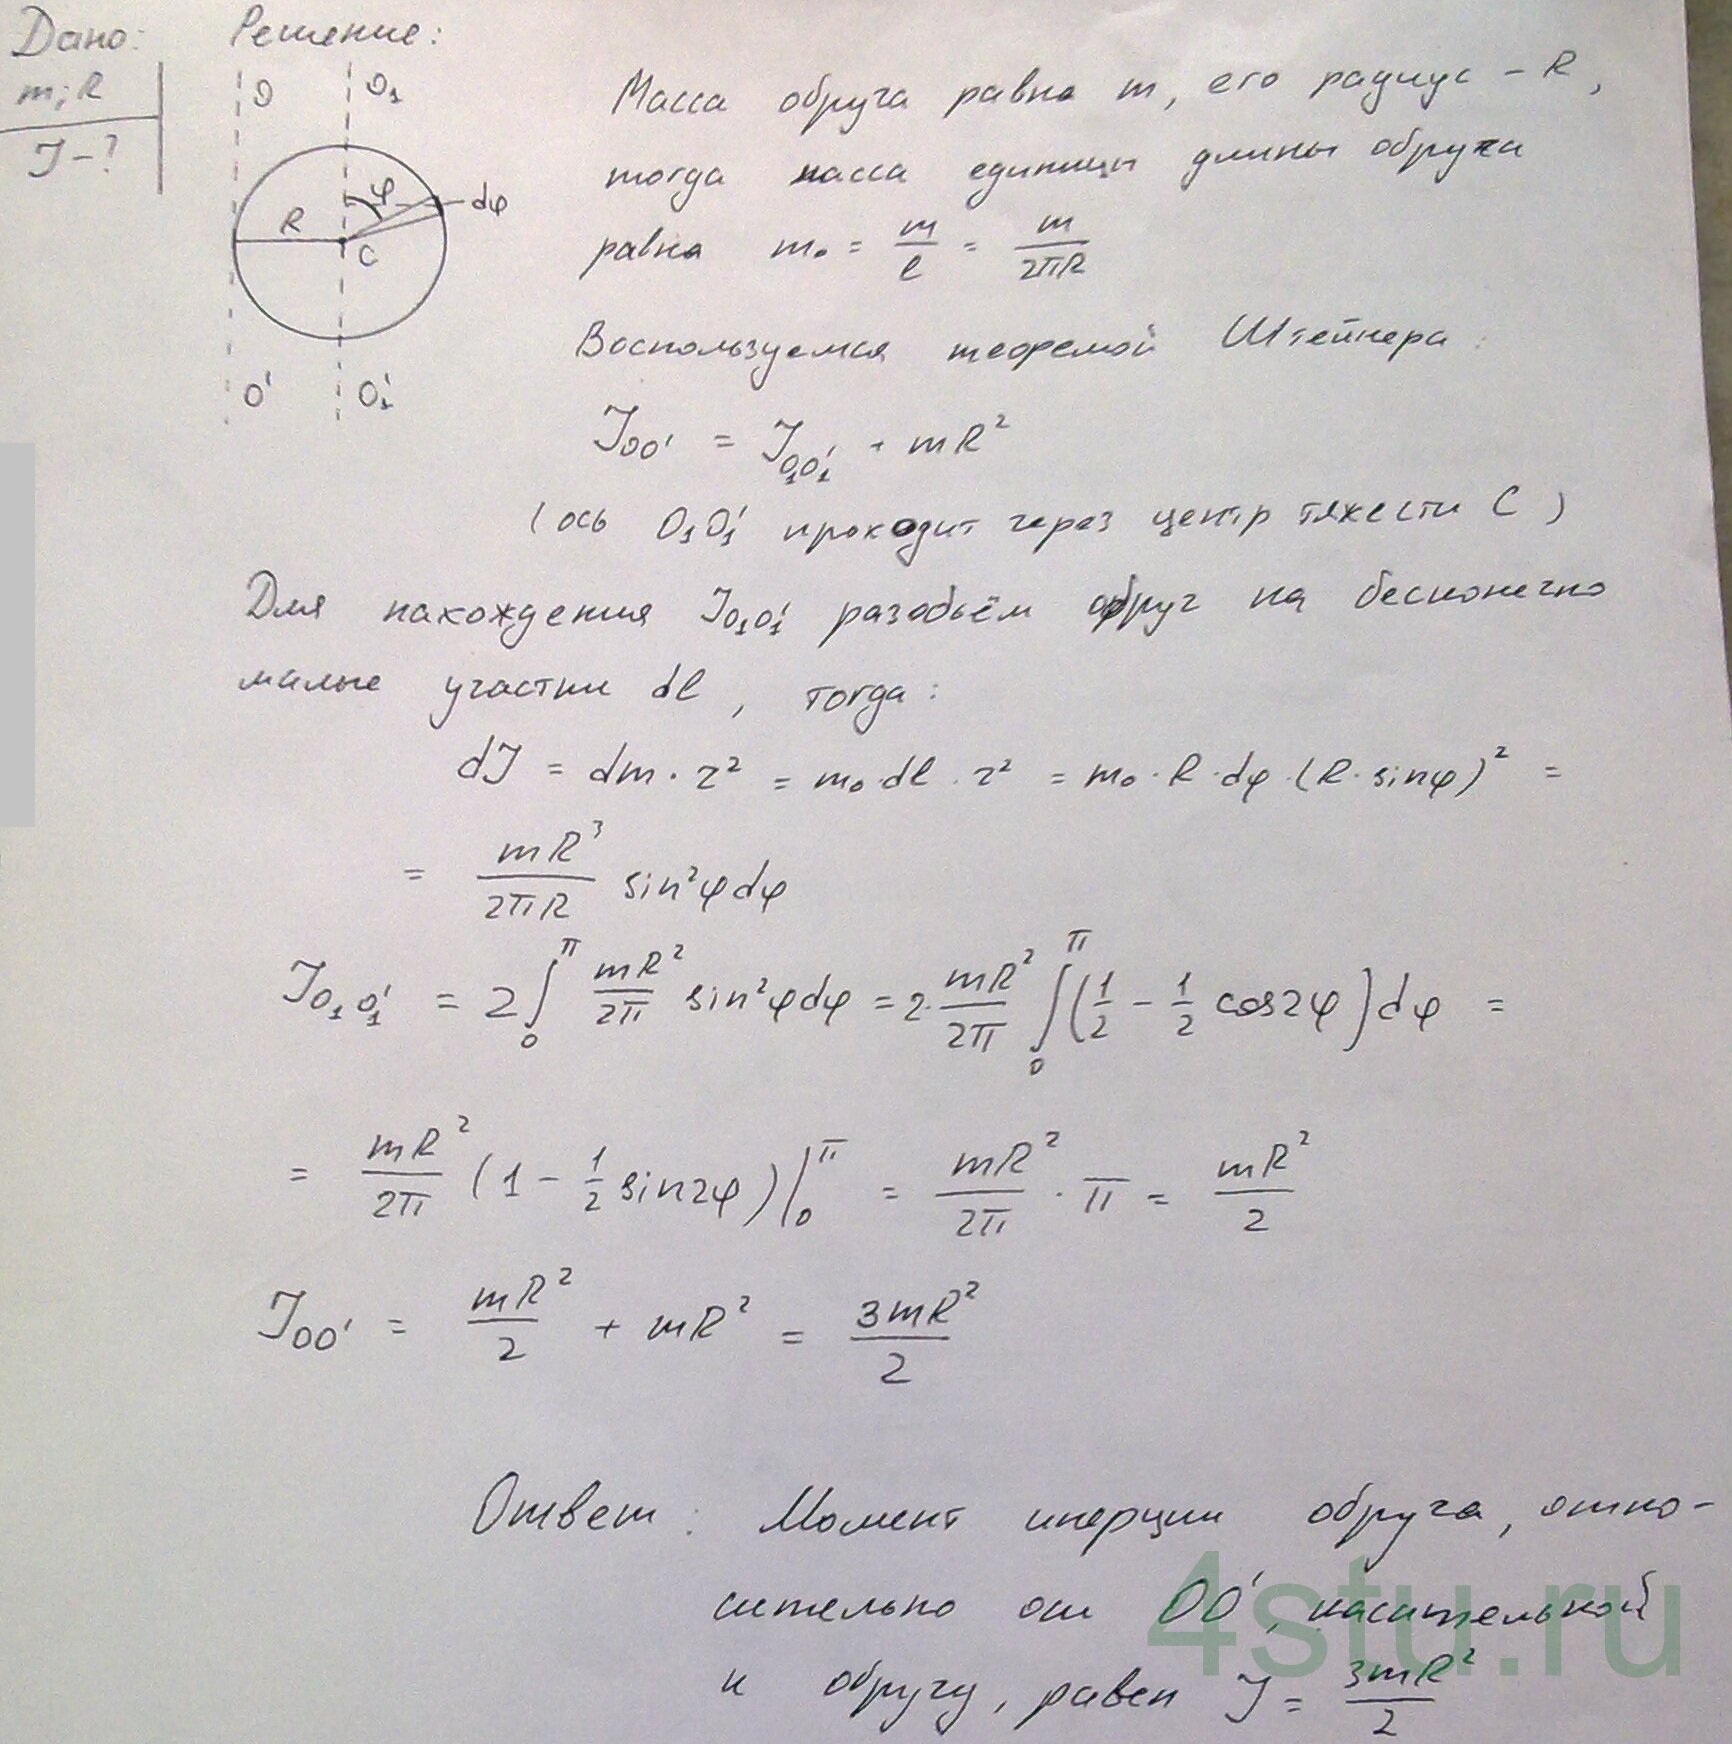 Дано:
m; R
J - ?
Решение:
O O₁
R φ dφ
C
O' O₁'
Масса обруча равна m, его радиус - R,
тогда масса единицы длины обруча
равна m₀ = m/l = m/(2πR)
Воспользуемся теоремой Штейнера:
J_OO' = J_O₁O₁' + mR²
(ось O₁O₁' проходит через центр тяжести C)
Для нахождения J_O₁O₁' разобьём обруч на бесконечно
малые участки dl, тогда:
dJ = dm · r² = m₀ · dl · r² = m₀ · R · dφ · (R · sinφ)² =
= mR³/(2πR) sin²φ dφ
J_O₁O₁' = 2 ∫₀^π mR²/(2π) sin²φ dφ = 2 · mR²/(2π) ∫₀^π (1/2 - 1/2 cos2φ) dφ =
= mR²/(2π) (1 - 1/2 sin2φ) |₀^π = mR²/(2π) · π = mR²/2
J_OO' = mR²/2 + mR² = 3mR²/2
Ответ: Момент инерции обруча, отно-
сительно оси OO', касательной
к обручу, равен J = 3mR²/2
4stu.ru